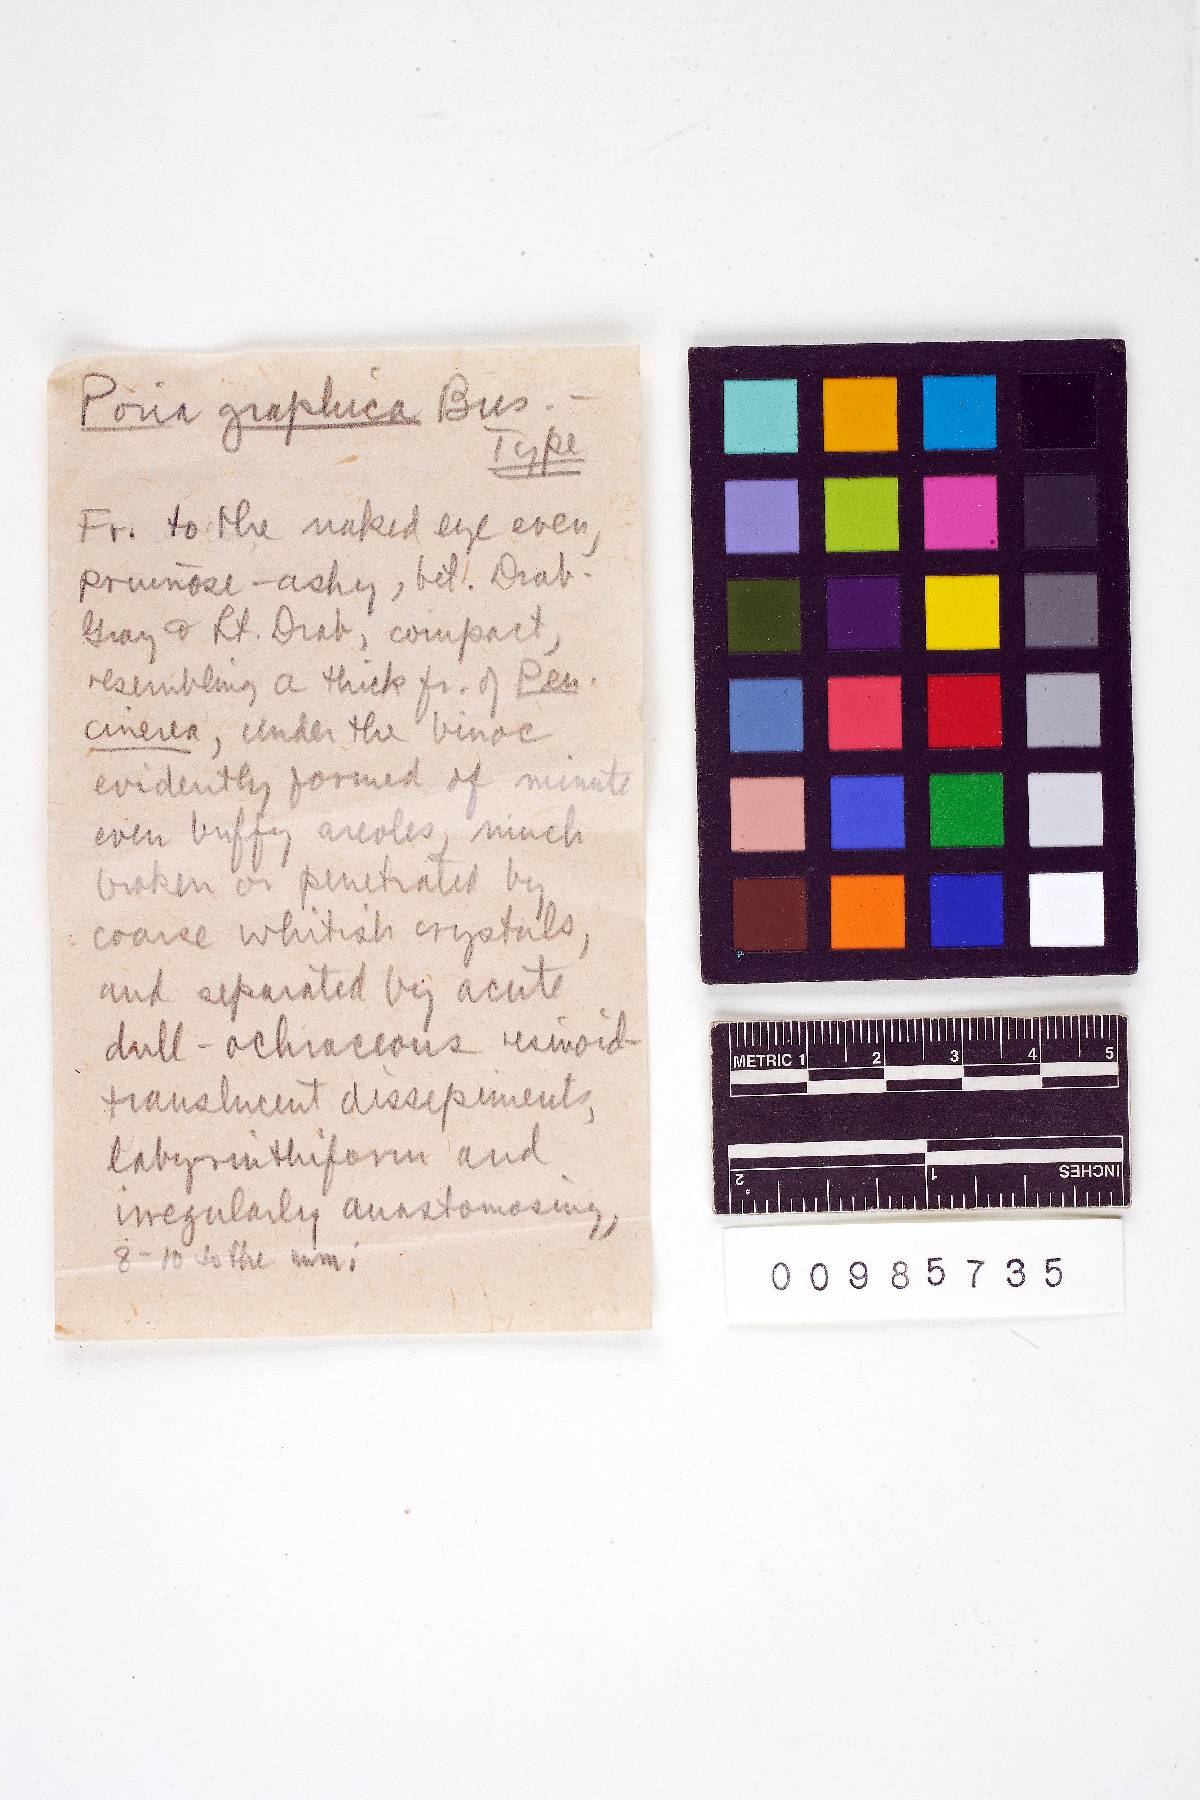 Poria graphica Bres. -
Type
Fr. to the naked eye even,
pruinose-ashy, bet. Drab-
Gray & Lt. Drab, compact,
resembling a thick fr. of Pen.
cinerea, under the binoc
evidently formed of minute
even buffy areoles, much
broken or penetrated by
coarse whitish crystals,
and separated by acute
dull-ochraceous resinoid-
translucent dissepiments,
labyrinthiform and
irregularly anastomosing,
8-10 to the mm;
METRIC 1 2 3 4 5
2 1 INCHES
00985735